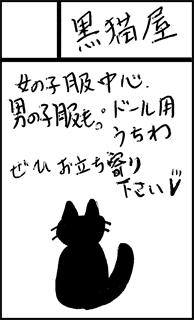 黒猫屋
女の子服中心.
男の子服も。ドール用
うちわ
ぜひお立ち寄り
下さい